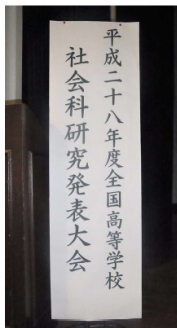 平成二十八年度全国高等学校
社会科研究発表大会